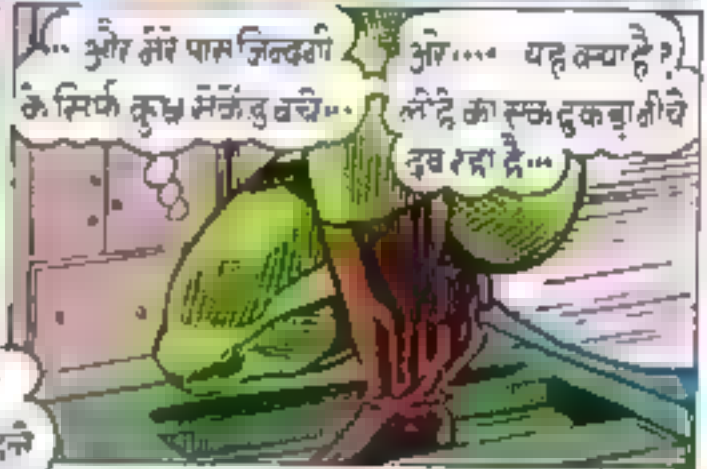 ... और मेरे पास जिन्दगी
के सिर्फ कुछ सेकेंड बचे...
अरे.... यह क्या है?
लोहे का एक टुकड़ा नीचे
दब रहा है...